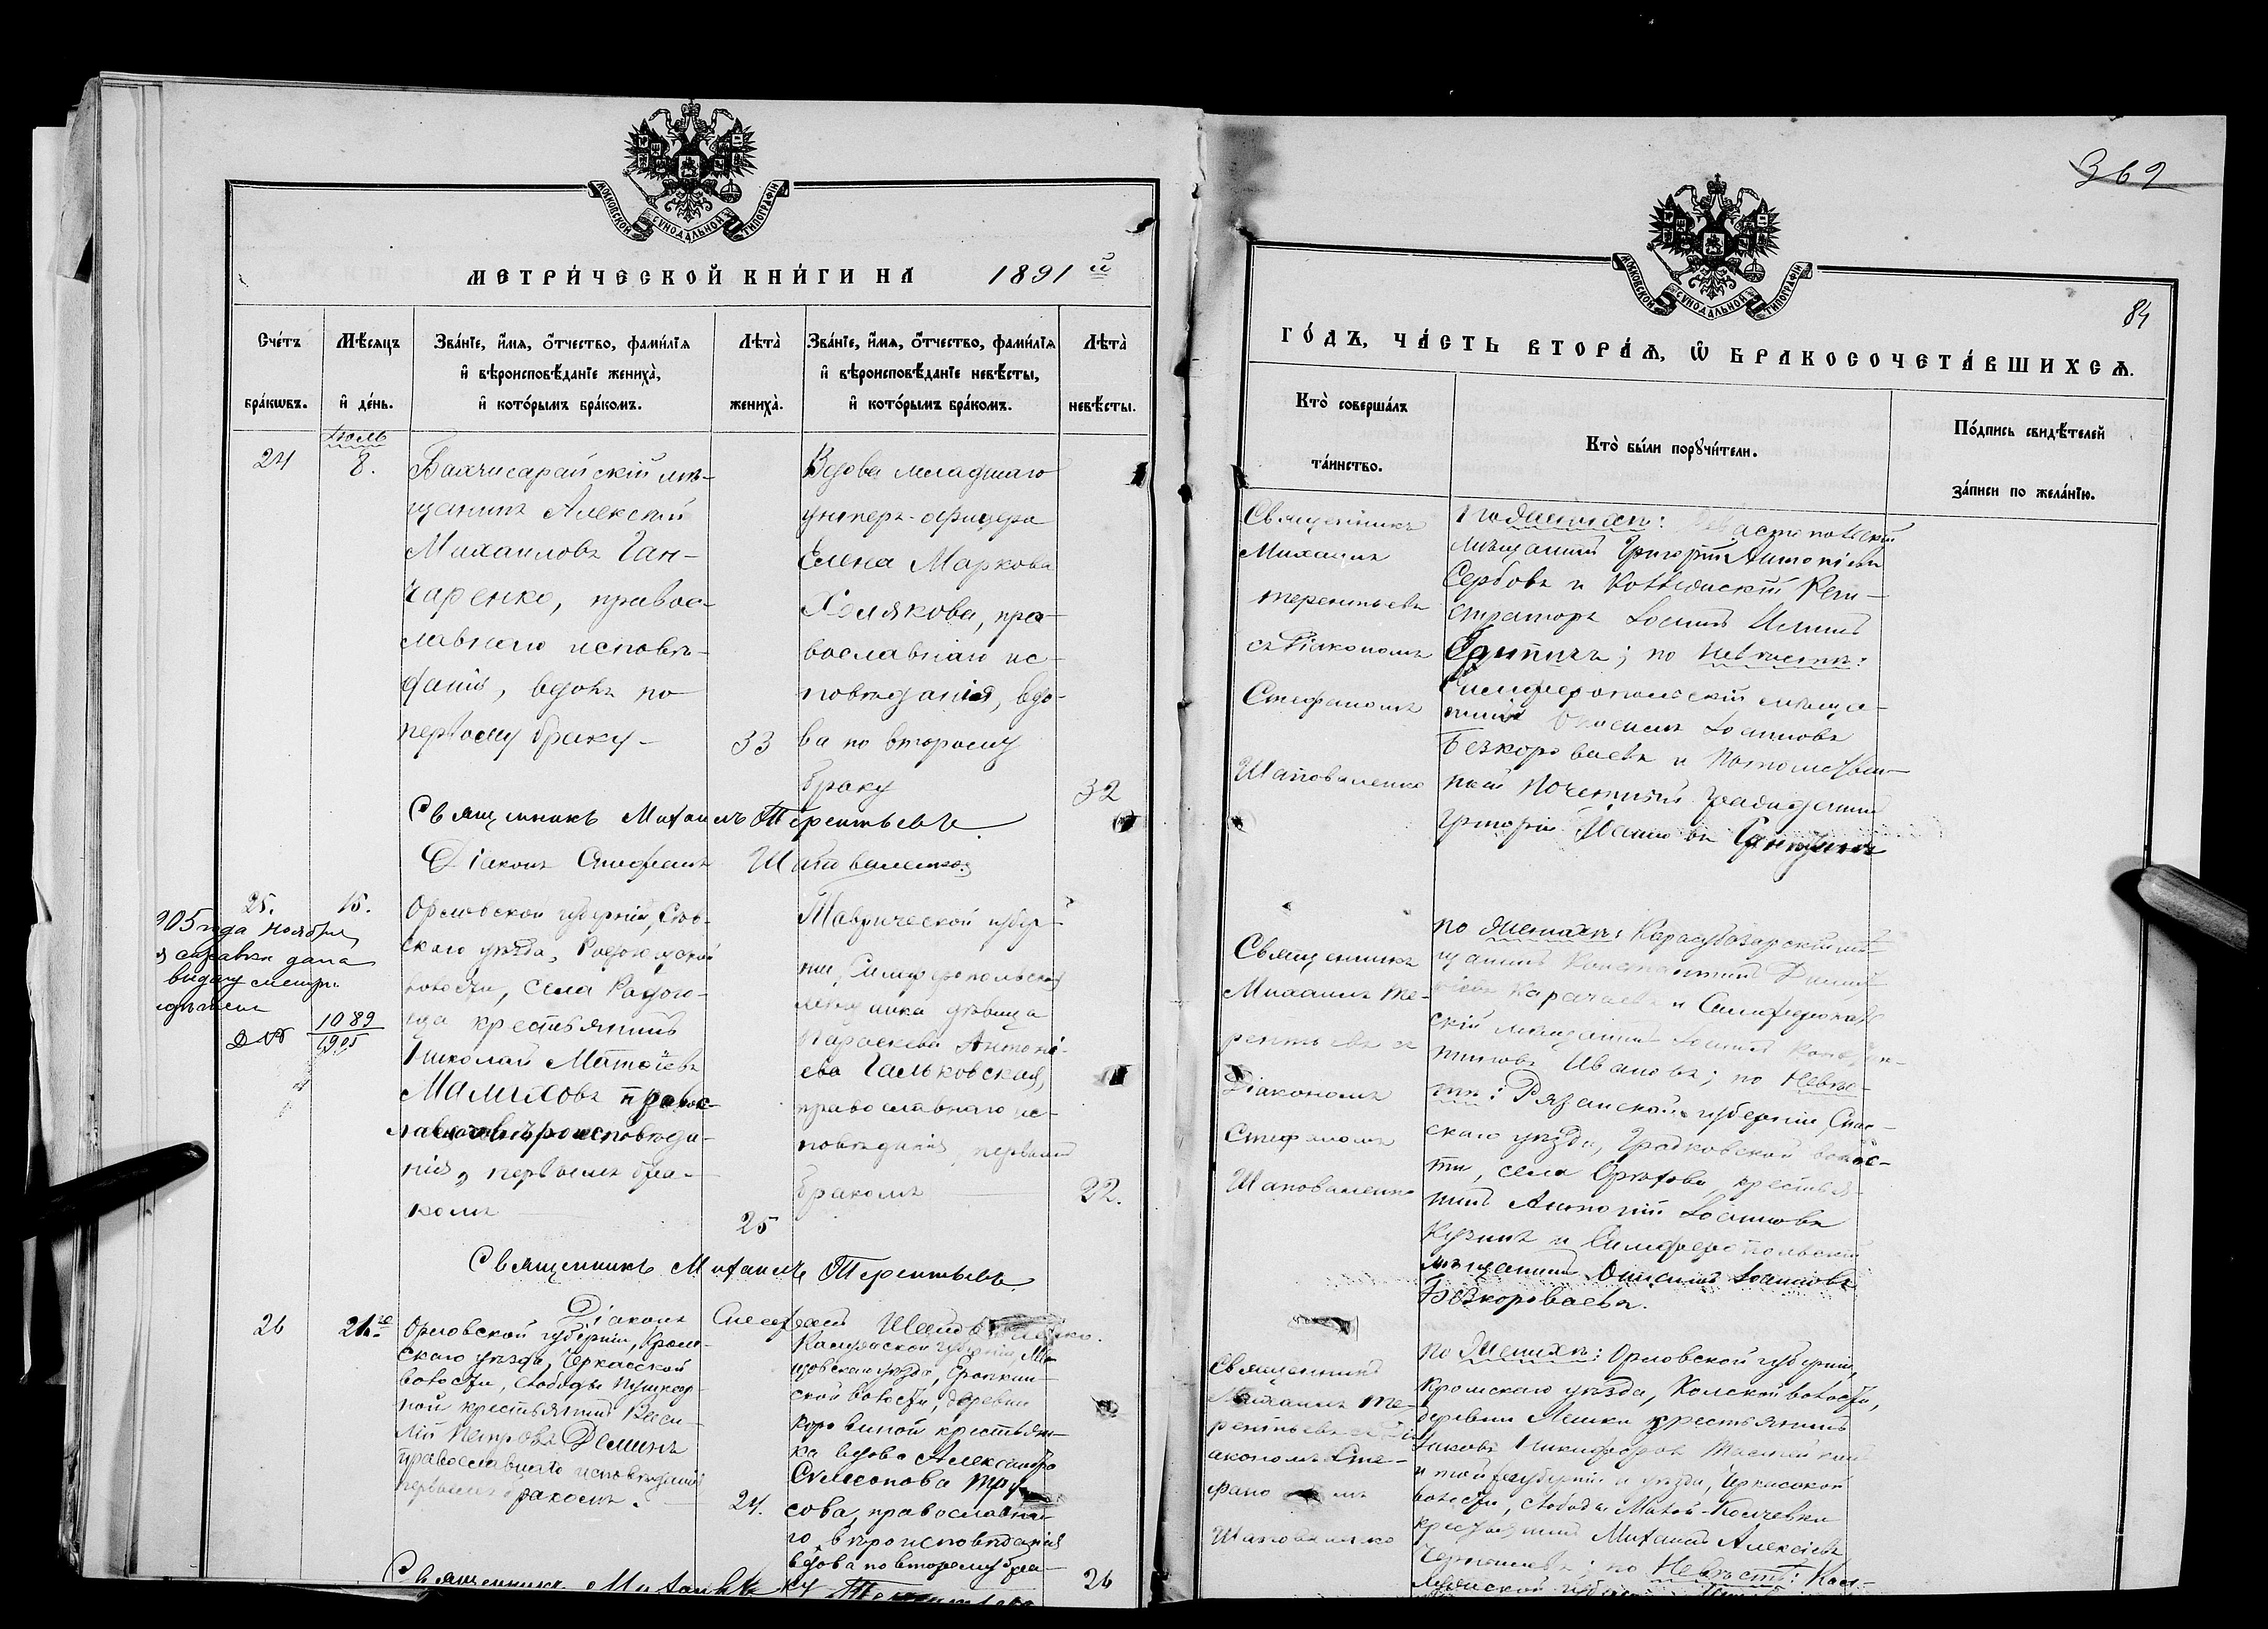 МОСКОВСКОЙ СѴНОДАЛЬНОЙ ТИПОГРАФІИ
МЕТРИ́ЧЕСКОЙ КНИ́ГИ НА 1891 й
Сче́тъ бра́кѡвъ.
Мѣ́сяцъ и де́нь.
Зва́нїе, и́мѧ, ѻ́тчество, фами́лїѧ
и вѣроисповѣ́данїе жениха̀,
и кото́рымъ бра́комъ.
Лѣта̀ жениха̀.
Зва́нїе, и́мѧ, ѻ́тчество, фами́лїѧ
и вѣроисповѣ́данїе невѣ́сты,
и кото́рымъ бра́комъ.
Лѣта̀ невѣ́сты.
24
Іюль
8.
Бахчисарайскій мѣ-
щанинъ Алексѣй
Михаиловъ Ган-
чаренко, правос-
лавнаго исповѣ-
данія, вдовъ по
первому браку
33
Вдова младшаго
унтеръ-офицера
Елена Маркова
Холякова, пра-
вославнаго ис-
повѣданія, вдо-
ва по второму
браку
32
Священникъ Михаилъ Терентьевъ.
Діаконъ Стефанъ Шаповаленко.
25.
15.
905 года Ноября
справка дана
1089
1905
Орловской губерніи, Сѣв-
скаго уѣзда, Радогожской
волости, села Радого-
ща крестьянинъ
Николай Матѳіевъ
Малиховъ правос-
лавнаго вѣроисповѣда-
нія, первымъ бра-
комъ
25
Таврической губер-
ніи, Симферопольская
мѣщанка дѣвица
Параскева Антоні-
ева Гальковская,
православнаго ис-
повѣданія, первымъ
бракомъ
22.
Священникъ Михаилъ Терентьевъ.
Діаконъ Стефанъ Шаповаленко.
26
21.го
Орловской губерніи, Кром-
скаго уѣзда, Черкасской
волости, слободы Пушкар-
ной крестьянинъ Васи-
лій Петровъ Деминъ
православнаго исповѣданія
первымъ бракомъ.
24.
Калужской губерніи,
уѣзда,
ской волости, деревни
крестьян-
ка вдова Александра
Симеонова
сова, православна-
го вѣроисповѣданія
вдова по второму бра-
ку
26
Священникъ Михаилъ Терентьевъ
369
МОСКОВСКОЙ СѴНОДАЛЬНОЙ ТИПОГРАФІИ
84
ГО́ДЪ, ЧА́СТЬ ВТОРА́Ѧ, Ѡ҆ БРАКОСОЧЕТА́ВШИХСѦ.
Кто̀ соверша́лъ
та́инство.
Кто̀ бы́ли порꙋчи́тели.
По́дпись свидѣ́телей
за́писи по жела́нїю.
Священникъ
Михаилъ
Терентьевъ
съ Діакономъ
Стефаномъ
Шаповаленко
По Женихѣ: Севастопольскій
мѣщанинъ Григорій Антоніевъ
Сербовъ и Коллежскій Реги-
страторъ Іоаннъ
по Невѣстѣ:
Симферопольскій мѣща-
нинъ Іоанновъ
Безкороваевъ и Потомствен-
ный Почетный гражданинъ
Григорій
Священникъ
Михаилъ Те-
рентьевъ съ
Діакономъ
Стефаномъ
Шаповаленко
по Женихѣ: Карасубазарскій мѣ-
щанинъ Константинъ
Карачаевъ и Симферополь-
скій мѣщанинъ Іоаннъ Констан-
тиновъ Ивановъ; по Невѣс-
тѣ: Рязанской губерніи, Спас-
скаго уѣзда, Градковской волос-
ти, села крестья-
нинъ Антоній Іоанновъ
Кузинъ и Симферопольскій
мѣщанинъ Іоанновъ
Безкороваевъ.
Священникъ
Михаилъ Те-
рентьевъ съ Ді-
акономъ Сте-
фаномъ
Шаповаленко
по Женихѣ: Орловской губерніи,
Кромскаго уѣзда, волости,
деревни крестьянинъ
Іаковъ Никифоровъ
и той же губерніи и уѣзда, Черкасской
волости, слободы
крестьянинъ Михаилъ Алексіевъ
по Невѣстѣ: Кал-